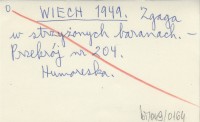 WIECH 1949. Zgaga
w strzyżonych baranach. –
Przekrój nr 204.
Humoreska.